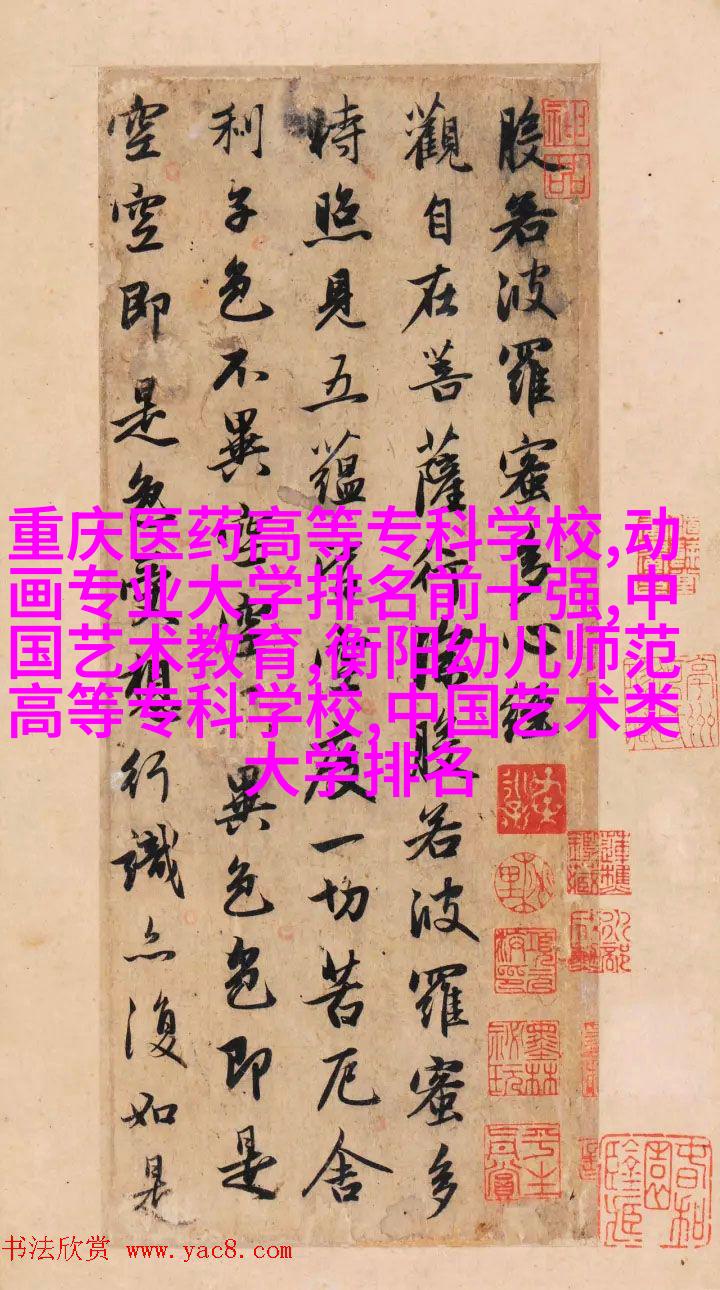 般若波羅蜜多心經
觀自在菩薩行深般若波羅蜜多
時照見五蘊皆空度一切苦厄舍
利子色不異空空不異色色即是
空空即是色受想行識亦復如是
重庆医药高等专科学校,动
画专业大学排名前十强,中
国艺术教育,衡阳幼儿师范
高等专科学校,中国艺术类
大学排名
神品
书法欣赏 www.yac8.com